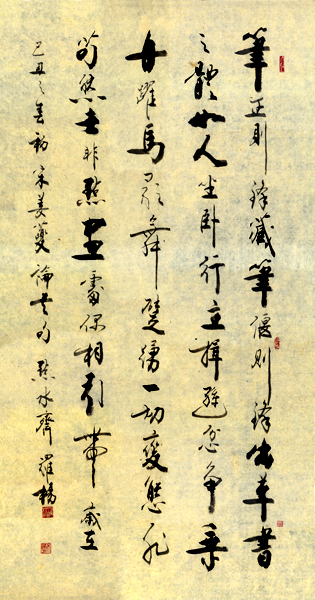 筆正則鋒藏筆偃則鋒出草書
之體如人坐卧行立揖遜忿争乘
舟躍馬歌舞躃踴一切變態非
苟然者非點畫處偶相引帶歲在
己丑之春初宋姜夔論書句點水齋羅楊